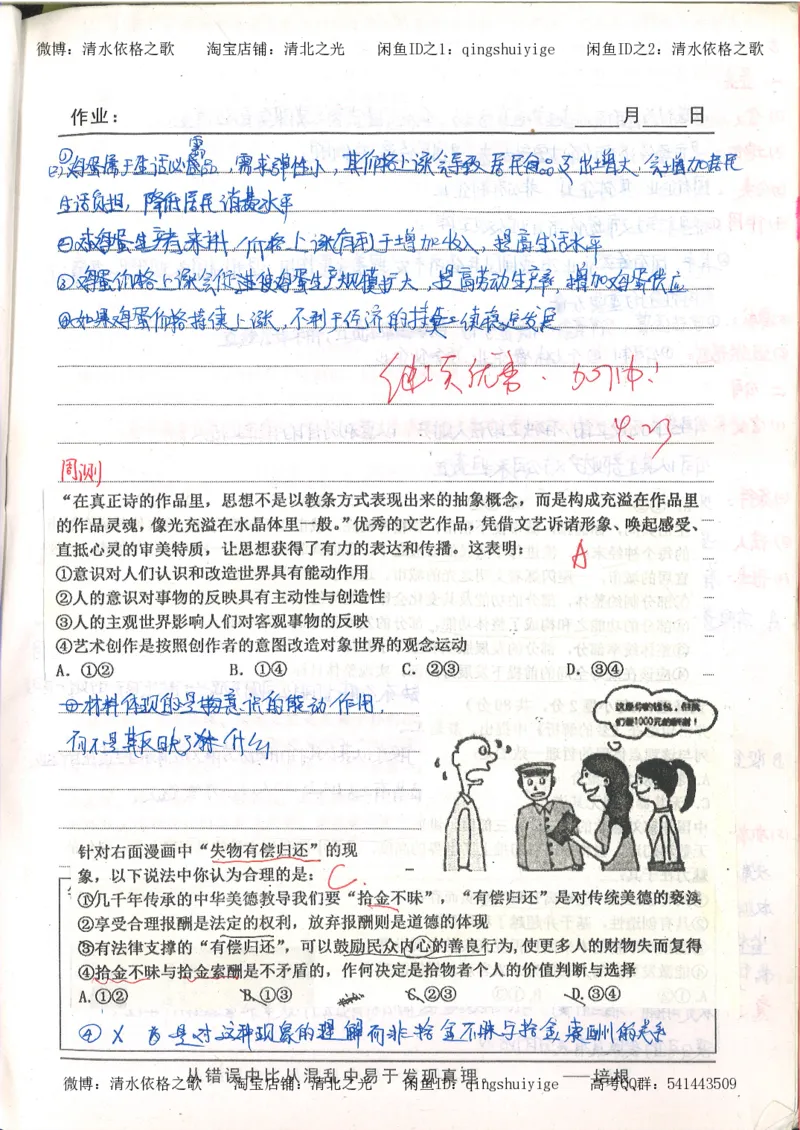 微博：清水依格之歌 淘宝店铺：清北之光 闲鱼ID之1：qingshuiyige 闲鱼ID之2：清水依格之歌
作业： 月 日
①鸡蛋属于生活必需品，需求弹性小，其价格上涨会导致居民食品支出增大，会增加居民
生活负担，降低居民消费水平
②对鸡蛋生产者来料，价格上涨有利于增加收入，提高生活水平
③鸡蛋价格上涨会促进使鸡蛋生产规模扩大，提高劳动生产率，增加鸡蛋供应
④如果鸡蛋价格持续上涨，不利于经济的持续稳定发展
继续优秀．加油！
周测
“在真正诗的作品里，思想不是以教条方式表现出来的抽象概念，而是构成充溢在作品里
的作品灵魂，像光充溢在水晶体里一般。”优秀的文艺作品，凭借文艺诉诸形象、唤起感受、
直抵心灵的审美特质，让思想获得了有力的表达和传播。这表明：
A
①意识对人们认识和改造世界具有能动作用
②人的意识对事物的反映具有主动性与创造性
③人的主观世界影响人们对客观事物的反映
④艺术创作是按照创作者的意图改造对象世界的观念运动
A．①② B．①④ C．②③ D．③④
材料体现的是物意识的能动作用，
而不是其反映了什么
这是你的钱包，但我
们要1000元的酬谢！
针对右面漫画中“失物有偿归还”的现
象，以下说法中你认为合理的是：
C
①几千年传承的中华美德教导我们要“拾金不昧”，“有偿归还”是对传统美德的亵渎
②享受合理报酬是法定的权利，放弃报酬则是道德的体现
③有法律支撑的“有偿归还”，可以鼓励民众内心的善良行为，使更多人的财物失而复得
④拾金不昧与拾金索酬是不矛盾的，作何决定是拾物者个人的价值判断与选择
A.①② B.①③ C.②③ D.③④
④ X 考是对这种现象的理解而非拾金不昧与拾金索酬的关系
从错误中比从混乱中易于发现真理。 ——培根
微博：清水依格之歌 淘宝店铺：清北之光 闲鱼ID：qingshuiyige 高考QQ群：541443509